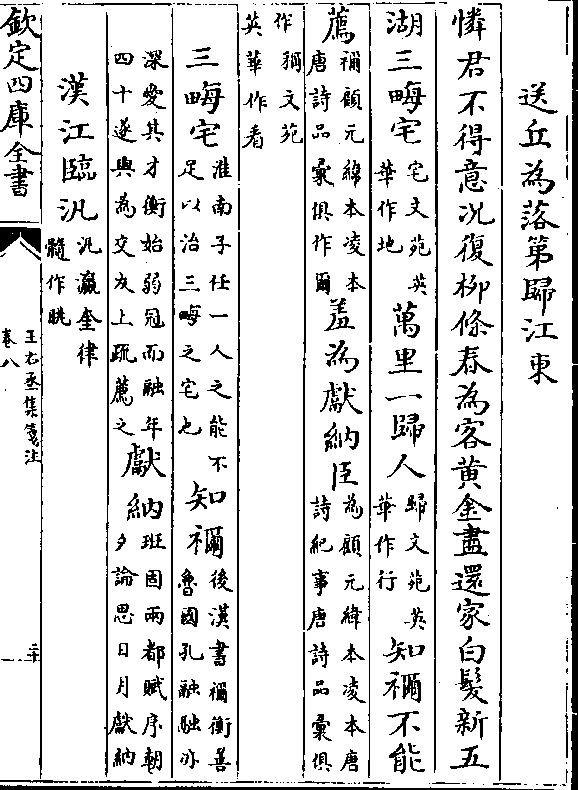 送丘為落第歸江東
憐君不得意况復柳條春為客黄金盡還家白髮新五
湖三畮宅宅文苑英華作地萬里一歸人歸文苑英華作行知禰不能
薦禰顧元緯本凌本唐詩品彙俱作爾羞為獻納臣為顧元緯本凌本唐詩紀事唐詩品彙俱
作稱文苑英華作看
三畮宅淮南子任一人之能不足以治三畮之宅也知禰後漢書禰衡善魯國孔融融亦
深愛其才衡始弱冠而融年四十遂與為交友上疏薦之獻納班固兩都賦序朝夕論思日月獻納
漢江臨汎汎瀛奎律髓作眺
欽定四庫全書
王右丞集箋注
卷八
二十